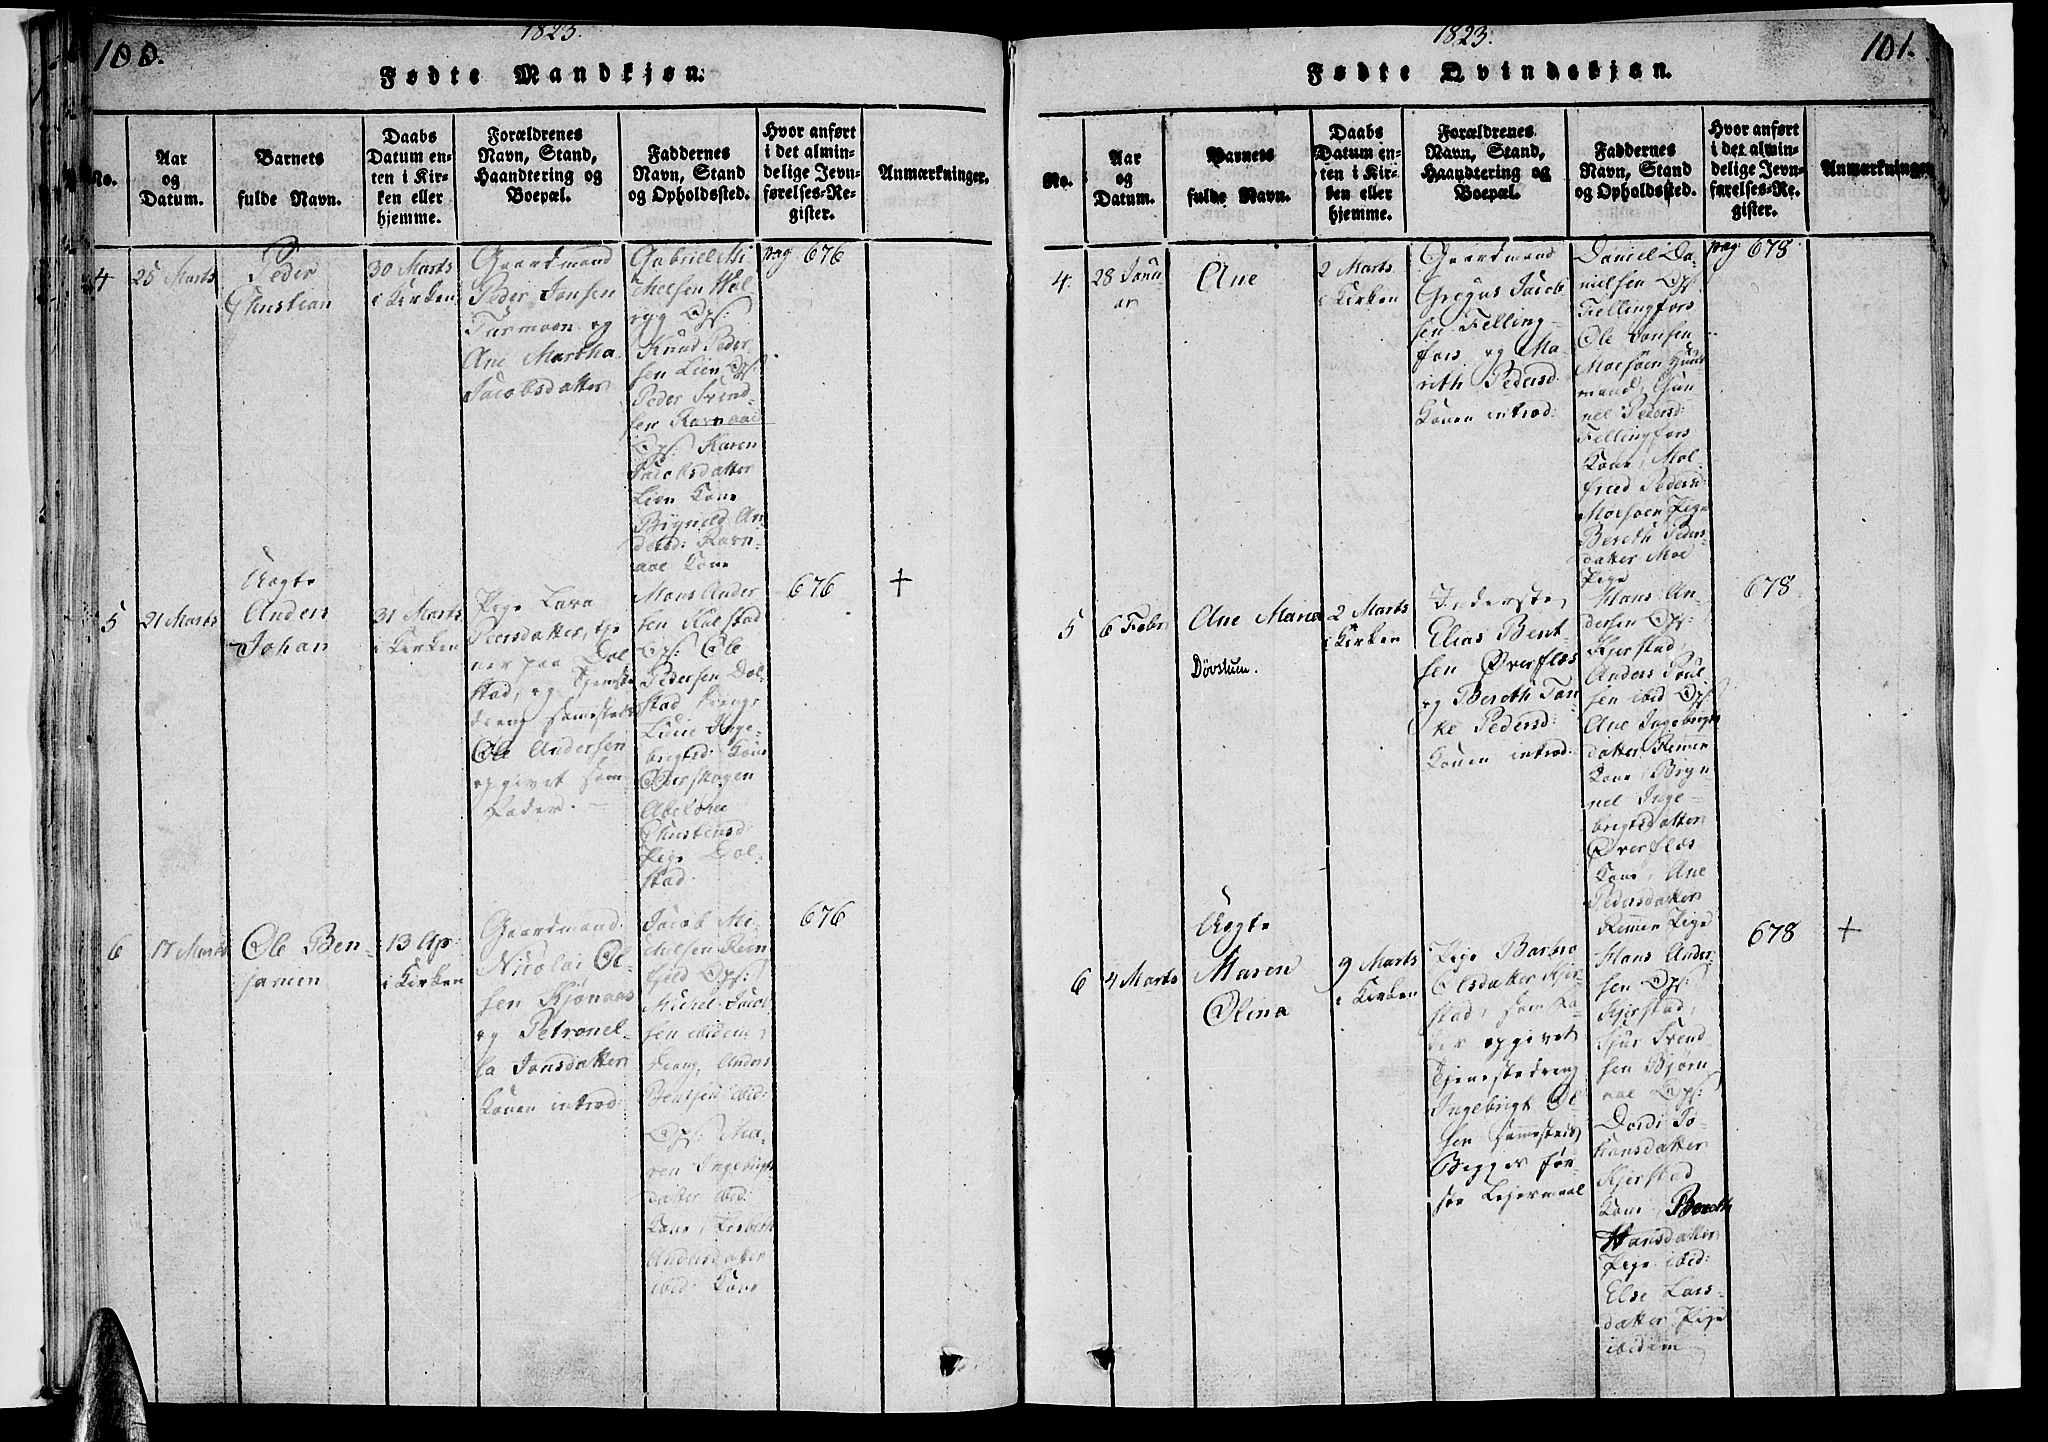 100.
1823.
Fødte Mandkjøn.
No.
Aar
og
Datum.
Barnets
fulde Navn.
Daabs
Datum en-
ten i Kir-
ken eller
hjemme.
Forældrenes
Navn, Stand,
Haandtering og
Boepæl.
Faddernes
Navn, Stand
og Opholdssted.
Hvor anført
i det almin-
delige Jevn-
førelses-Re-
gister.
Anmærkninger.
4
25 Marts
Peder
Christian
30 Marts
i Kirken
Gaardmand
Peder Jonsen
og
Ane Martha
Jacobsdatter
Gabriel Mi
chelsen
Ops:
Knud Peder
sen Lien Ops:
Peder Svend-
sen Ravnaae
Ops: Karen
Jacobsdatter
Lien Kone
Brynild An
dersd: Ravn-
aae Kone
pag 676
5
21 Marts
Uægte
Anders
Johan
31 Marts
i Kirken
Pige Lava
Peersdatter, tje
ner paa Dol
stad, og Tjeneste
dreng sammesteds
Ole Andersen
opgivet som
Fader.
Mons Ander
sen Kulstad
Ops: Ole
Pedersen Dol
stad Dreng,
Inge-
brigtsd: Kone
Øverskogen
Abelone
Christensd:
Pige Dol-
stad
676
+
6
17 Marts
Ole Ben-
jamin
13 Ap:
i Kirken
Gaardmand
Nicolai Ol-
sen Kjønaas
og Petronel-
la Jonsdatter
Konen introd:
Jacob Mi-
chelsen
Ops:
Michel Jacob
sen ibidem,
Dreng, Anders
Bentsen ibid:
Ops: Ma-
ren Ingebrigts
datter ibid:
Kone,
Andersdatter
ibid: Kone
676
101.
1823.
Fødte Qvindekjøn.
No.
Aar
og
Datum.
Barnets
fulde Navn.
Daabs
Datum en-
ten i Kir-
ken eller
hjemme.
Forældrenes
Navn, Stand,
Haandtering og
Boepæl.
Faddernes
Navn, Stand
og Opholdssted.
Hvor anført
i det almin-
delige Jevn-
førelses-Re-
gister.
Anmærkninger
4.
28 Janu
ar
Ane
2 Marts
i Kirken
Gaardmand
Gregus Jacob
sen Felling-
fors og Ma-
rith Pedersd:
Konen introd:
Daniel Da-
nielsen Ops:
Fellingfors
Ole Jonsen
Mosøen Huus
mand, Gun
nel Pedersd:
Fellingfors
Kone, Mal-
fried Pedersd:
Mosøen Pige
Bereth Peders-
datter Moe
Pige
pag 678
5
6 Febr
Ane Maria
Døvstum.
2 Marts
i Kirken
Inderste
Elias Bent-
sen Øverflæs
og Bereth Tan-
ke Pedersd:
Konen introd:
Hans An-
dersen Ops:
Kjerstad
Anders Poul
sen ibid Ops:
Ane Ingebrigts
datter Remen
Kone, Bryn-
nel Inge-
brigtsdatter
Øverflæs
Kone, Ane
Pedersdatter
Remen Pige
678
6
4 Marts
Uægte
Maren
Olina
9 Marts
i Kirken
Pige Barbro
Olsdatter Kjer-
stad, som Fa-
der opgivet
Tjenestedreng
Ingebrigt Ol-
sen sammesteds
Begges før-
ste Lejermaal
Hans Ander-
sen Ops:
Kjerstad,
Sjur Svend-
sen Bjørn
aae Ops:
Dordi Jo-
hansdatter
Kjerstad
Kone, Bereth
Hansdatter
Pige ibid:
Else Lars-
datter Pige
ibidem
678
+